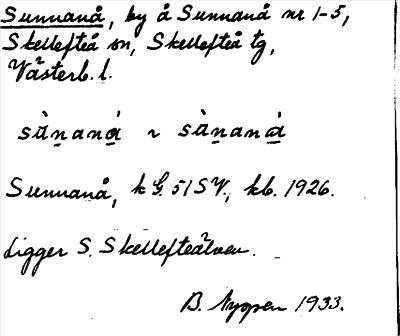 Sunnanå, by å Sunnanå nr 1-5,
Skellefteå sn, Skellefteå tg,
Västerb. l.
sùnaná ~ sùnaná
Sunnanå, k G. 51 SV., kb. 1926.
Ligger S. Skellefteälven.
B. Nygren 1933.